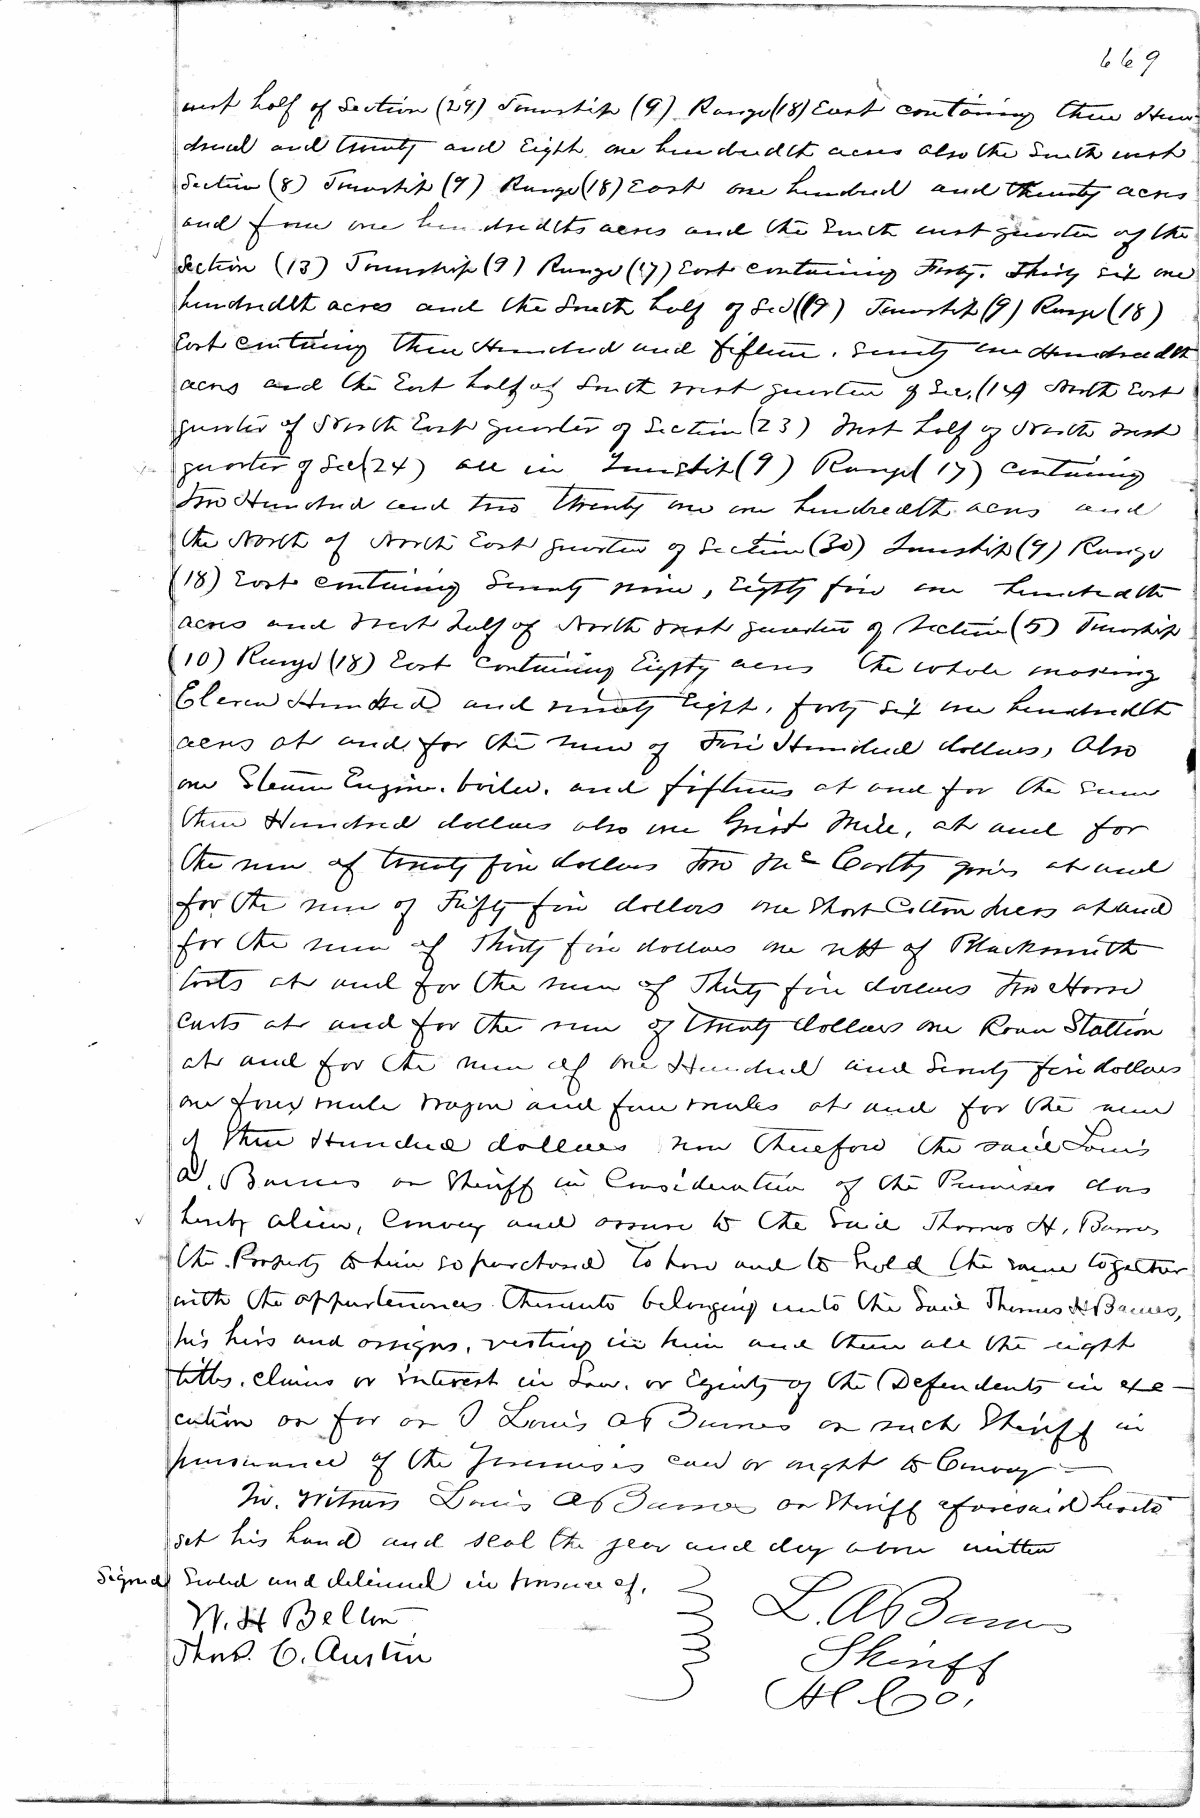 669
west half of Section (29) Township (9) Range (18) East containing three Hun-
dred and twenty and Eight one hundredth acres also the South west
Section (8) Township (9) Range (18) East one hundred and twenty acres
and four one hundredths acres and the South west quarter of the
Section (13) Township (9) Range (17) East containing Forty. Thirty six one
hundredth acres and the South half of Sec (19) Township (9) Range (18)
East containing three Hundred and fifteen. Seventy one Hundredth
acres and the East half of South west quarter of Sec. (14) North East
quarter of North East quarter of Section (23) West half of North West
quarter of Sec (24) all in Township (9) Range (17) containing
Two Hundred and two twenty one one hundredth acres and
the North of North East quarter of Section (30) Township (9) Range
(18) East containing Seventy nine, Eighty five one hundredth
acres and West half of North West quarter of Section (5) Township
(10) Range (18) East containing Eighty acres the whole making
Eleven Hundred and ninety Eight, forty six one hundredth
acres at and for the sum of Five Hundred dollars, Also
one Steam Engine. boiler. and fixtures at and for the sum
three Hundred dollars also one Grist Mill, at and for
the sum of twenty five dollars Two McCarthy gins at and
for the sum of Fifty five dollars one Short Cotton press at and
for the sum of Thirty five dollars one sett of Blacksmith
tools at and for the sum of Thirty five dollars Two Horse
carts at and for the sum of twenty dollars one Roan Stallion
at and for the sum of one Hundred and Seventy five dollars
one four mule wagon and four mules at and for the sum
of Three Hundred dollars now therefore the said Louis
A. Barnes as Sheriff in Consideration of the Premises does
hereby alien, Convey and assure to the Said Thomas H. Barnes
the Property to him so purchased To have and to hold the same together
with the appurtenances thereunto belonging unto the Said Thomas H Barnes,
his heirs and assigns, vesting in him and them all the right
titles. claims or interest in Law. or Equity of the Defendents in exe-
cution as far as I Louis A Barnes as such Sheriff in
pursuance of the Premises can or ought to Convey
In. Witness Louis A Barnes as Sheriff aforesaid hereto
set his hand and seal the year and day above written
Signed Sealed and delivered in presence of.
W. H Belton
Thos. C. Austin
L. A Barnes
Sheriff
A. Co.